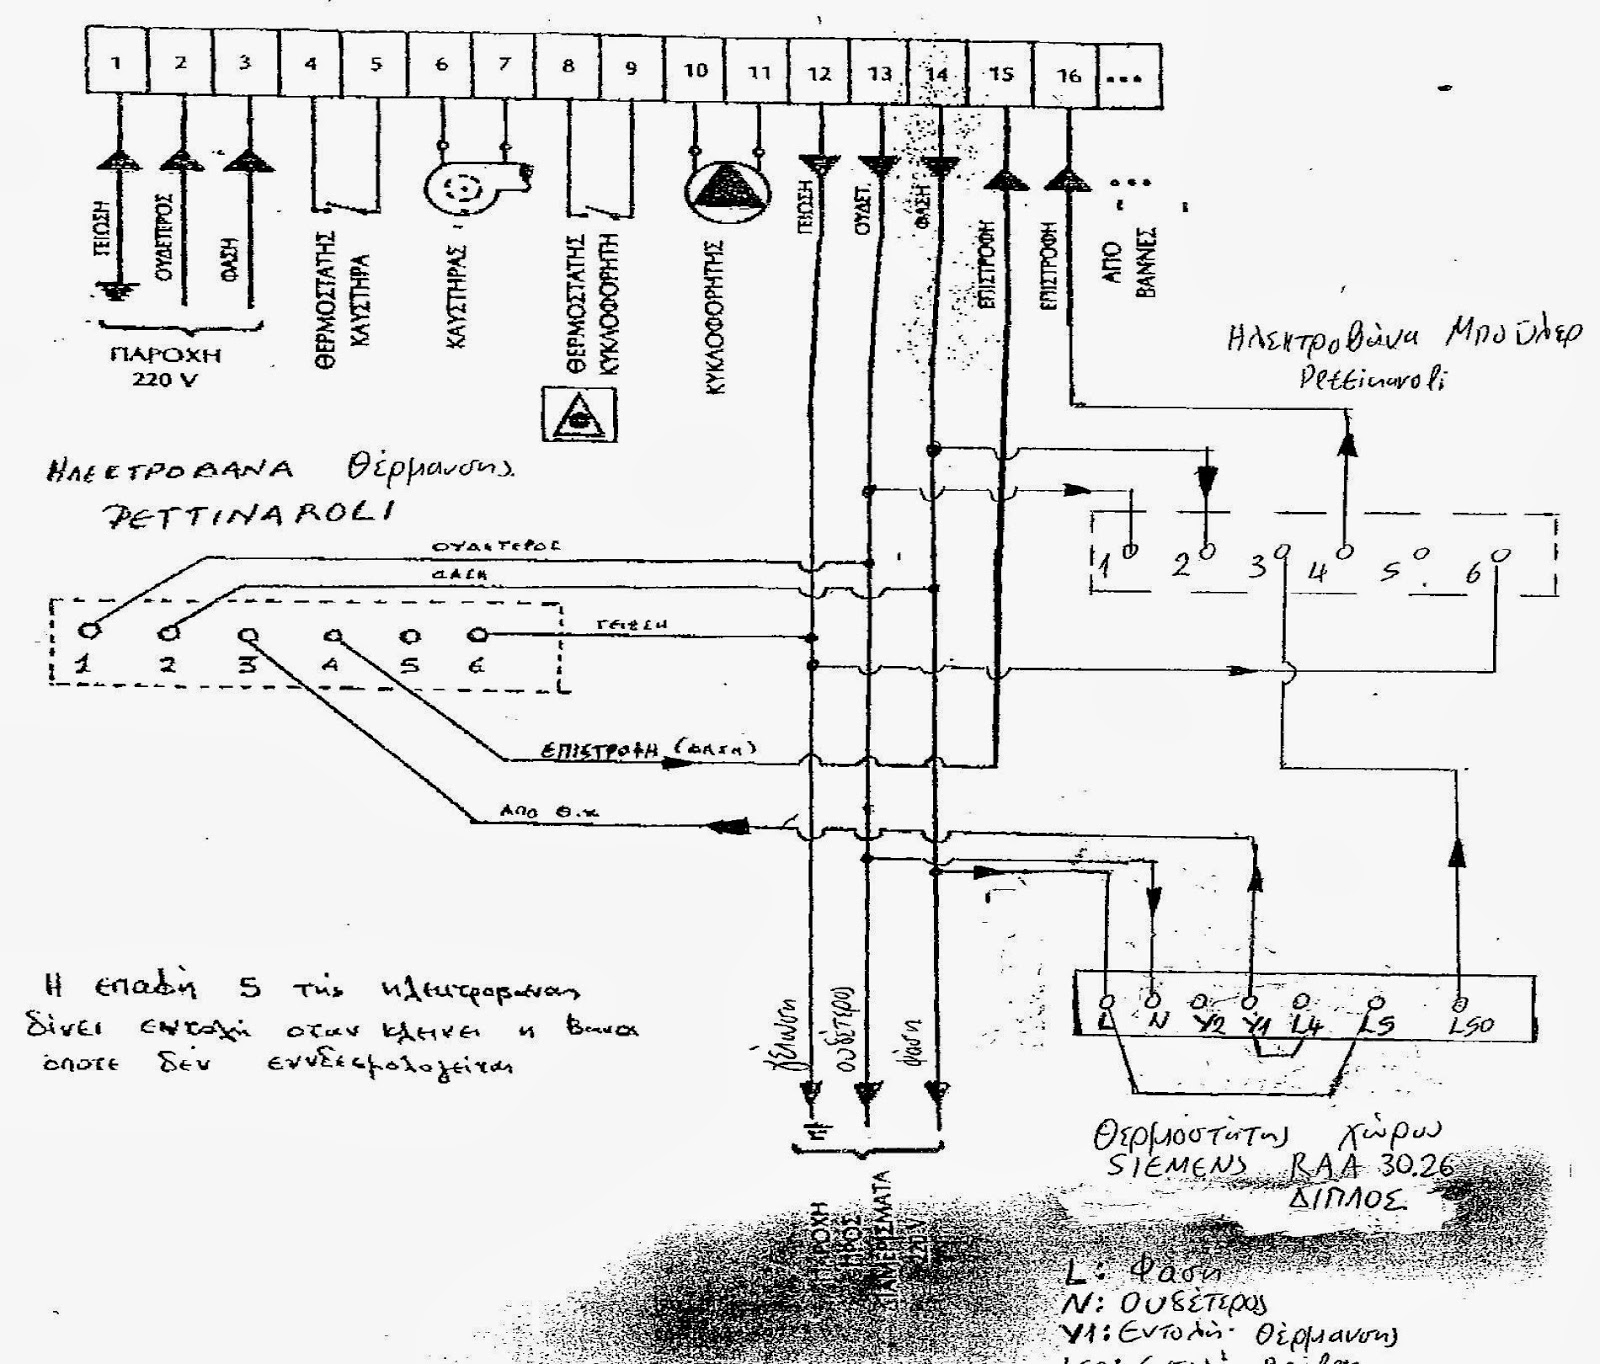 1 2 3 4 5 6 7 8 9 10 11 12 13 14 15 16 ...
ΓΕΙΩΣΗ
ΟΥΔΕΤΕΡΟΣ
ΦΑΣΗ
ΠΑΡΟΧΗ
220 V
ΘΕΡΜΟΣΤΑΤΗΣ
ΚΑΥΣΤΗΡΑ
ΚΑΥΣΤΗΡΑΣ
ΘΕΡΜΟΣΤΑΤΗΣ
ΚΥΚΛΟΦΟΡΗΤΗ
ΚΥΚΛΟΦΟΡΗΤΗΣ
ΓΕΙΩΣΗ
ΟΥΔΕΤ.
ΦΑΣΗ
ΕΠΙΣΤΡΟΦΗ
ΕΠΙΣΤΡΟΦΗ
...
ΑΠΟ
ΒΑΝΝΕΣ
Ηλεκτροβάνα Μπόϋλερ
Pettinaroli
ΗΛΕΚΤΡΟΒΑΝΑ Θέρμανσης.
PETTINAROLI
ΟΥΔΕΤΕΡΟΣ
ΦΑΣΗ
ΓΕΙΩΣΗ
1 2 3 4 5 6
1 2 3 4 5 6
ΕΠΙΣΤΡΟΦΗ (ΦΑΣΗ)
ΑΠΟ Θ.Χ
Η επαφή 5 της ηλεκτροβανας
δίνει εντολή οταν κλεινει η βανα
όποτε δεν εννδεσμολογείται
γείωση
ουδέτερος
φάση
L N Y2 Y1 L4 L5 LSO
Θερμοστάτης χώρου
SIEMENS RAA 30.26
ΔΙΠΛΟΣ.
ΠΑΡΟΧΗ
ΠΡΟΣ
ΔΙΑΜΕΡΙΣΜΑΤΑ
220 V
L: Φάση
N: Ουδέτερος
Y1: Εντολή Θέρμανσης